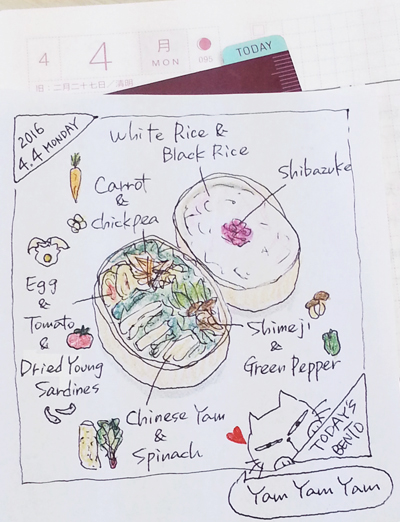 4
4
月
MON
095
TODAY
旧：二月二十七日／清明
2016
4.4 MONDAY
White Rice &
Black Rice
Shibazuke
Carrot
&
chickpea
Egg
&
Tomato
&
Dried Young
Sardines
Shimeji
&
Green Pepper
Chinese Yam
&
Spinach
TODAY'S
BENTO
Yam Yam Yam